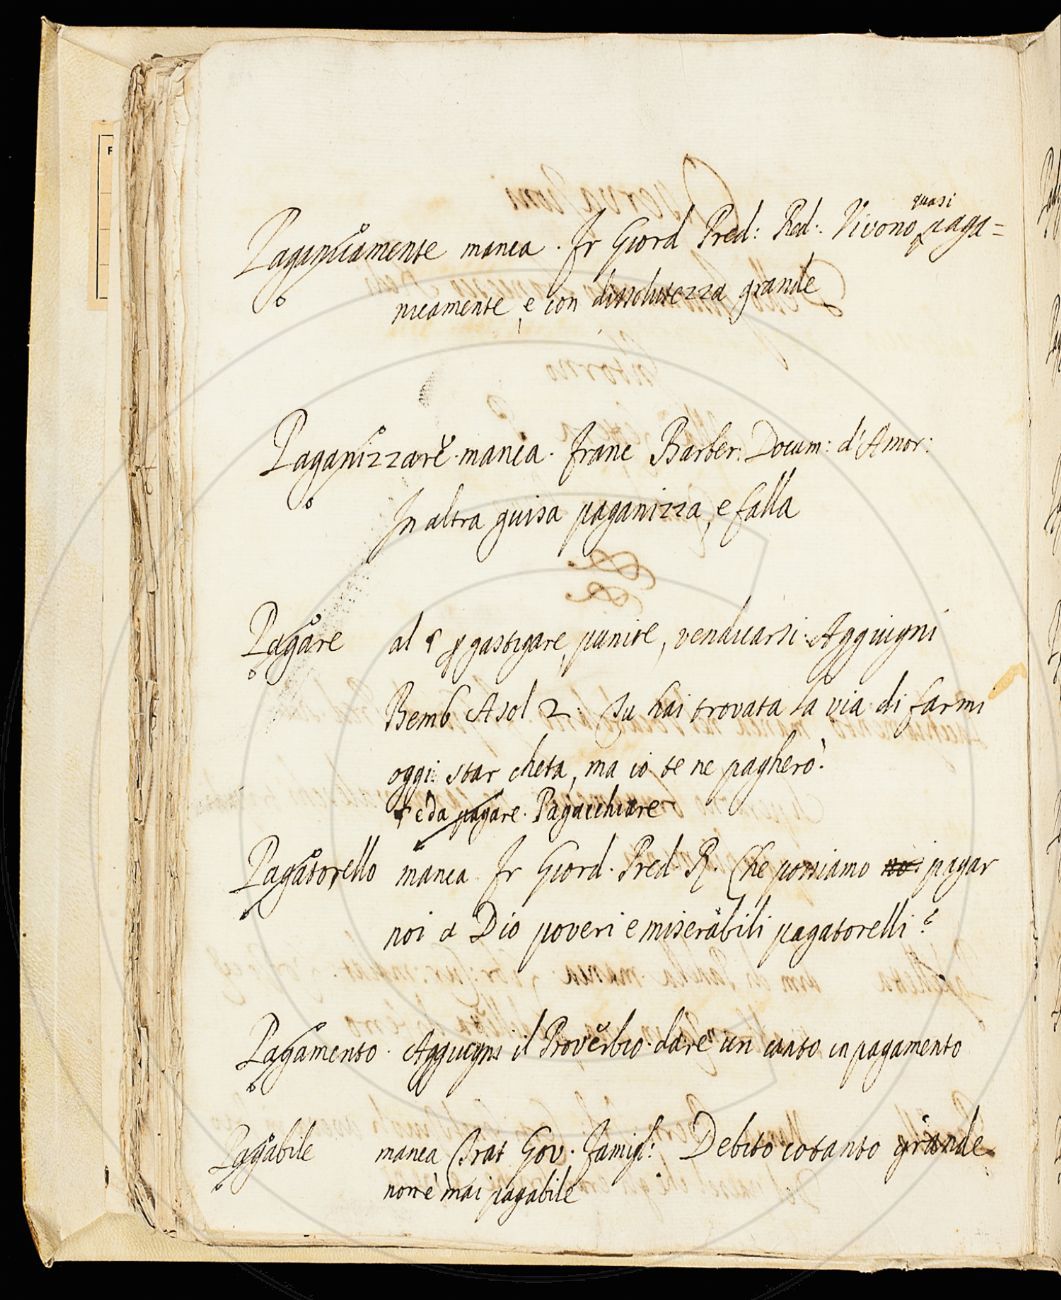 Paganicamente manca. Fr Giord Pred: Red: Vivono quasi paga=
nicamente, e con dissolutezza grande
Paganizzare manca. Franc Barber: Docum: d'Amor:
In altra guisa paganizza, e falla
Pagare al § gastigare, punire, vendicarsi. Aggiugni
Bemb Asol 2: Tu hai trovata la via di farmi
oggi star cheta, ma io te ne pagherò.
e da pagare. Pagacchiare
Pagatorello manca Fr Giord. Pred R. Che possiamo noi pagar
noi a Dio poveri e miserabili pagatorelli?
Pagamento. Aggiugni il Proverbio dare un canto in pagamento
Pagabile manca Trat Gov. Famigl: Debito cotanto grande
non è mai pagabile